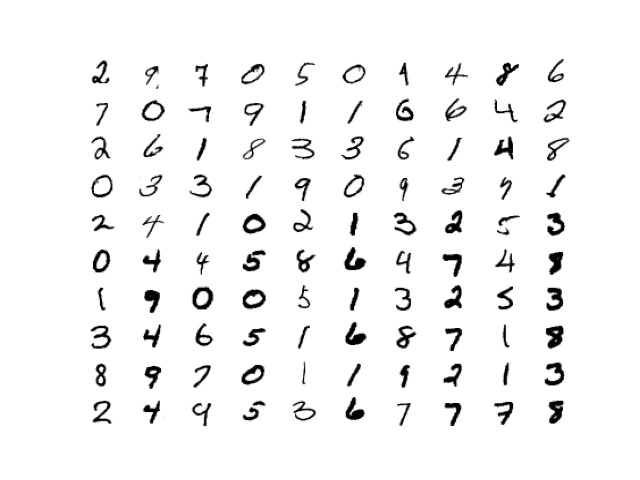 2 9 7 0 5 0 1 4 8 6
7 0 7 9 1 1 6 6 4 2
2 6 1 8 3 3 6 1 4 8
0 3 3 1 9 0 9 3 7 1
2 4 1 0 2 1 3 2 5 3
0 4 4 5 8 6 4 7 4 8
1 9 0 0 5 1 3 2 5 3
3 4 6 5 1 6 8 7 1 8
8 9 7 0 1 1 9 2 1 3
2 4 9 5 3 6 7 7 7 8